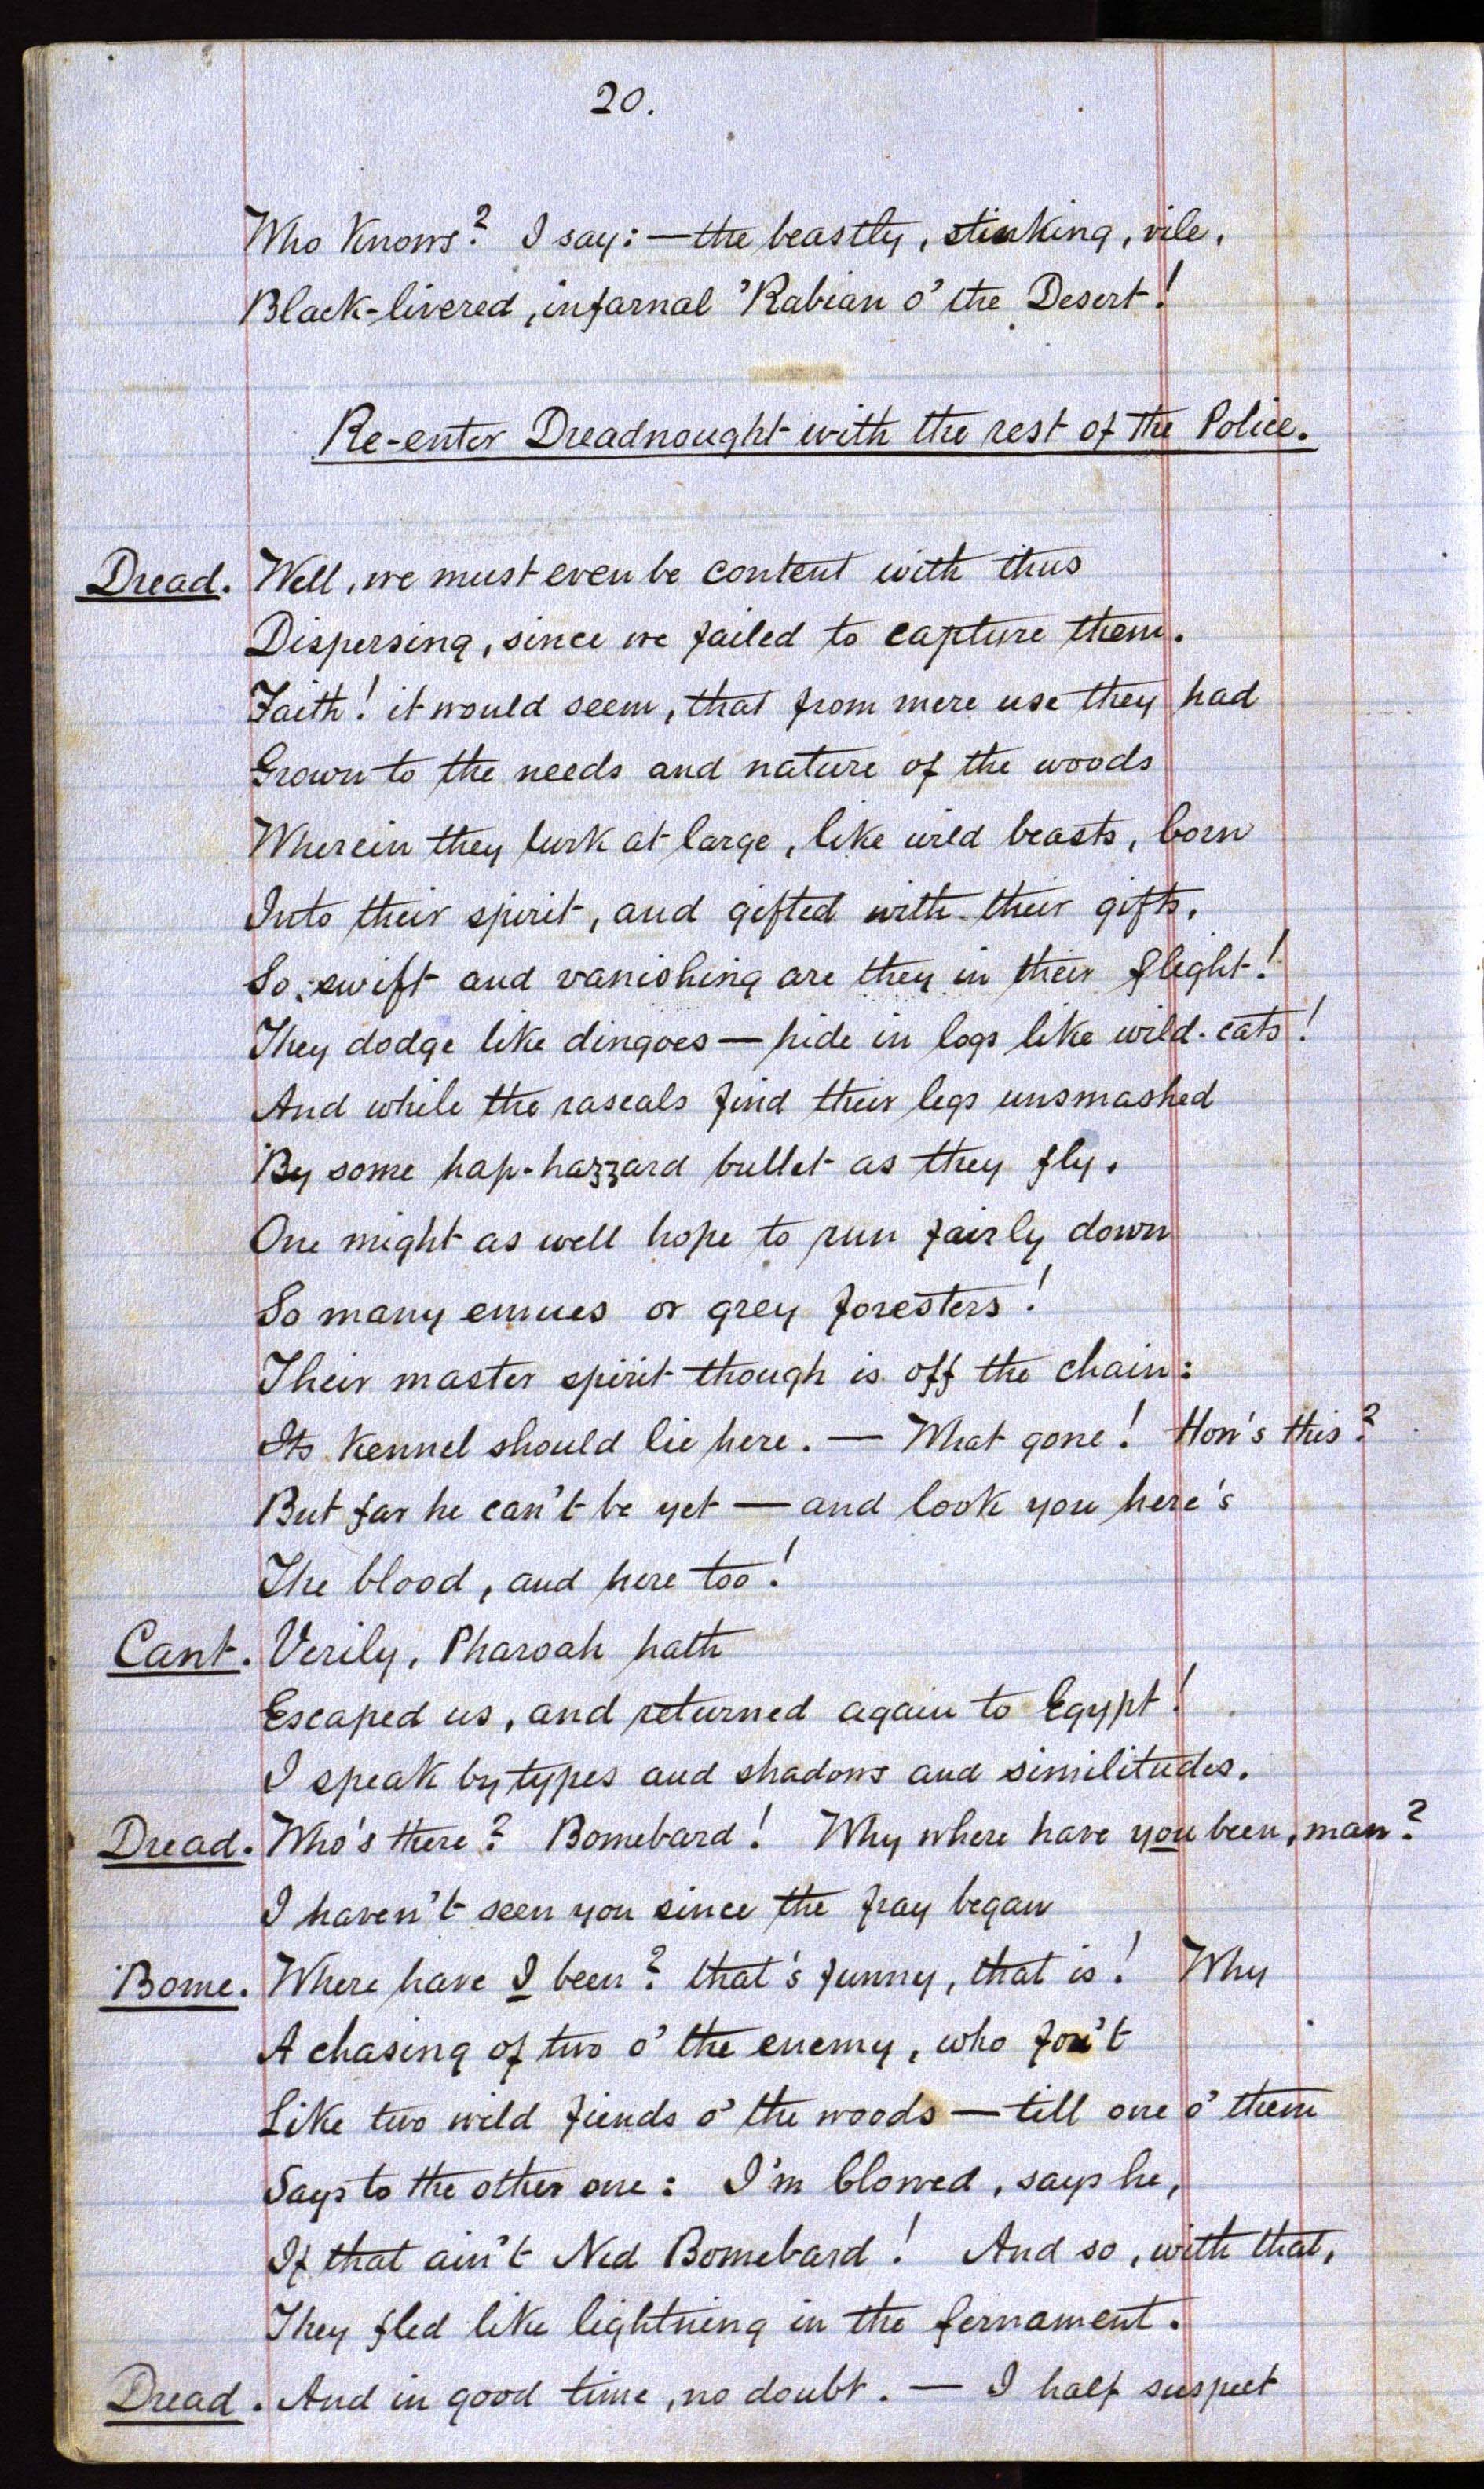 20.
Who Knows? I say:—the beastly, stinking, vile,
Black-livered, infarnal 'Rabian o' the Desert!
Re-enter Dreadnought with the rest of the Police.
Dread. Well, we must even be content with thus
Dispersing, since we failed to capture them.
Faith! it would seem, that from mere use they had
Grown to the needs and nature of the woods
Wherein they lurk at large, like wild beasts, born
Into their spirit, and gifted with their gifts,
So swift and vanishing are they in their flight!
They dodge like dingoes—hide in logs like wild-cats!
And while the rascals find their legs unsmashed
By some hap-hazzard bullet as they fly,
One might as well hope to run fairly down
So many emues or grey foresters!
Their master spirit though is off the chain:
Its Kennel should lie here. — What gone! How's this?
But far he can't be yet — and look you here's
The blood, and here too!
Cant. Verily, Pharoah hath
Escaped us, and returned again to Egypt!
I speak by types and shadows and similitudes.
Dread. Who's there? Bomebard! Why where have you been, man?
I haven't seen you since the fray began
Bome. Where have I been? that's funny, that is! Why
A chasing of two o' the enemy, who fou't
Like two wild fiends o' the woods — till one o' them
Says to the other one: I'm blowed, says he,
If that ain't Ned Bomebard! And so, with that,
They fled like lightning in the fernament.
Dread. And in good time, no doubt. — I half suspect